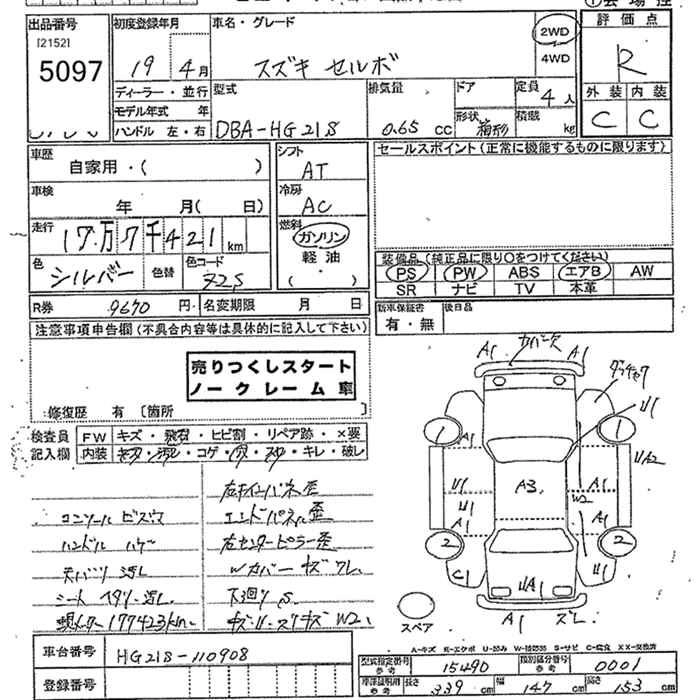 出品番号
[2152]
5097
初度登録年月
19 4月
ディーラー・並行
モデル年式 年
ハンドル 左・右
車名・グレード
スズキ セルボ
2WD
4WD
型式
DBA-HG21S
排気量
0.65 cc
ドア
定員
4人
形状
箱形
積載
kg
評価点
R
外装 内装
C C
車歴
自家用・( )
車検
年 月( 日)
走行
17万7千421km
色
シルバー
色替
色コード
Z2S
シフト
AT
冷房
AC
燃料
ガソリン
軽油
( )
セールスポイント(正常に機能するものに限ります)
装備品(純正品に限り○をつけてください)
PS PW ABS エアB AW
SR ナビ TV 本革
R券 9670円
名変期限 月 日
新車保証書
有・無
後日品
注意事項申告欄(不具合内容等は具体的に記入して下さい)
売りつくしスタート
ノークレーム車
修復歴 有〔箇所 〕
検査員
記入欄
FW キズ・飛石・ヒビ割・リペア跡・×要
内装 キズ・汚レ・コゲ・穴・スレ・キレ・破レ
コンソール ビスウ
ハンドル ハゲ
天バリ 汚レ
シート ヘタリ・汚レ
現メーター177423km
エンドパネル歪
右センターピラー歪
Wカバー キズ ワレ
下回り S
A1 カバー欠 A1
U1
1 A1 1
U1 A3 A1 UA2
U1 W2
A1 A1
2 2
C1 UA1 U1
A1 ズレ
スペア
A-キズ E-エクボ U-凹み W-補修跡 S-サビ C-腐食 XX-交換済
車台番号
HG21S-110908
登録番号
型式指定番号
参考
15490
類別区分番号
参考
0001
車庫証明用
参考
長さ
339cm
幅
147cm
高さ
153cm